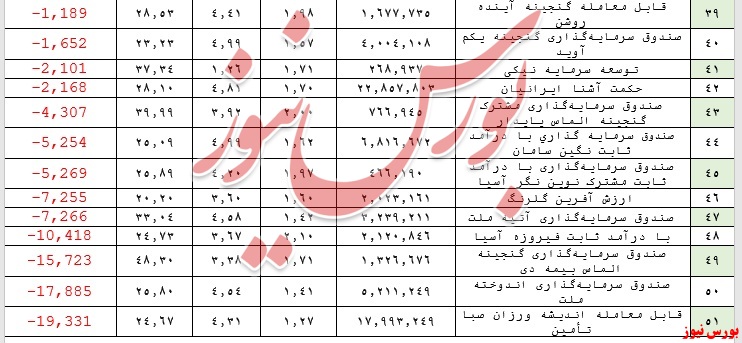 ۳۹ قابل معامله گنجینه آینده روشن ۱,۶۷۷,۷۳۵ ۱,۹۸ ۴,۴۱ ۲۸,۵۳ -1,189
۴۰ صندوق سرمایه‌گذاری گنجینه یکم آوید ۴,۰۰۴,۱۰۸ ۱,۵۷ ۴,۹۹ ۲۳,۲۳ -1,652
۴۱ توسعه سرمایه نیکی ۲۶۸,۹۳۷ ۱,۷۱ ۱,۲۶ ۳۷,۳۴ -2,101
۴۲ حکمت آشنا ایرانیان ۲۲,۸۵۷,۸۰۳ ۱,۷۰ ۴,۸۱ ۲۸,۱۰ -2,168
۴۳ صندوق سرمایه‌گذاری مشترک گنجینه الماس پایدار ۷۶۶,۹۴۵ ۲,۰۰ ۳,۹۲ ۳۹,۹۹ -4,307
۴۴ صندوق سرمایه گذاری با درآمد ثابت نگین سامان ۶,۸۱۶,۶۷۲ ۱,۶۲ ۴,۹۹ ۲۵,۰۹ -5,254
۴۵ صندوق سرمایه‌گذاری با درآمد ثابت مشترک نوین نگر آسیا ۴۶۶,۱۹۰ ۱,۹۷ ۴,۲۰ ۲۵,۸۹ -5,269
۴۶ ارزش آفرین گلرنگ ۲,۰۲۳,۱۶۱ ۱,۶۰ ۳,۶۰ ۲۰,۲۰ -7,255
۴۷ صندوق سرمایه‌گذاری آتیه ملت ۲,۲۳۹,۲۱۱ ۱,۴۲ ۴,۵۸ ۳۳,۰۴ -7,266
۴۸ با درآمد ثابت فیروزه آسیا ۲,۱۲۰,۸۴۶ ۲,۱۰ ۳,۶۷ ۲۴,۷۳ -10,418
۴۹ صندوق سرمایه‌گذاری گنجینه الماس بیمه دی ۱,۳۲۶,۶۷۶ ۱,۷۱ ۳,۳۸ ۴۸,۳۰ -15,723
۵۰ صندوق سرمایه‌گذاری اندوخته ملت ۵,۲۱۱,۲۴۹ ۱,۴۱ ۴,۵۴ ۲۵,۸۰ -17,885
۵۱ قابل معامله اندیشه ورزان صبا تأمین ۱۷,۹۹۳,۲۴۹ ۱,۲۷ ۴,۳۱ ۲۴,۶۷ -19,331
بورس نیوز
بورس نیوز